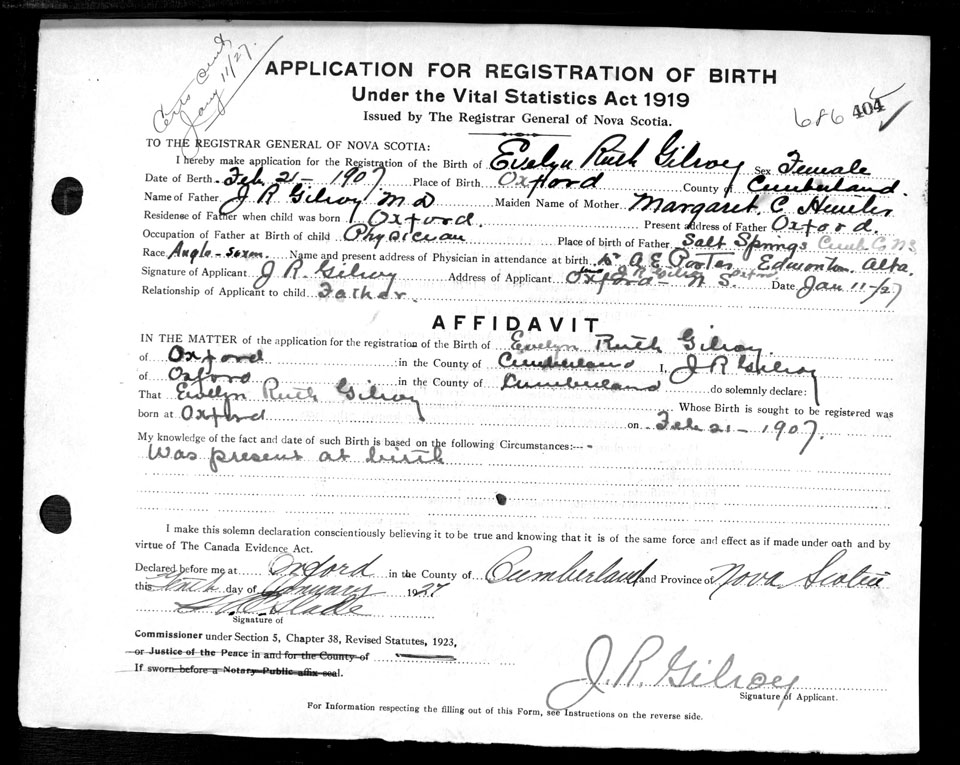 Certs
Jany 11/27.
APPLICATION FOR REGISTRATION OF BIRTH
Under the Vital Statistics Act 1919
Issued by The Registrar General of Nova Scotia.
686 404
TO THE REGISTRAR GENERAL OF NOVA SCOTIA:
I hereby make application for the Registration of the Birth of Evelyn Ruth Gilroy Sex Female
Date of Berth Feb 21 - 1907 Place of Birth Oxford County of Cumberland.
Name of Father J R Gilroy M.D Maiden Name of Mother Margaret. C Hunter
Residense of Father when child was born Oxford. Present address of Father Oxford.
Occupation of Father at Birth of child Physician Place of birth of Father Salt Springs Cumb Co NS
Race Anglo-Saxon. Name and present address of Physician in attendance at birth Dr A E Porter Edmonton. Alta.
Signature of Applicant J R Gilroy Address of Applicant Oxford - N S. Date Jan 11-/27
Relationship of Applicant to child Father.
AFFIDAVIT
IN THE MATTER of the application for the registration of the Birth of Evelyn Ruth Gilroy.
of Oxford in the County of Cumberland I, J R Gilroy
of Oxford in the County of Cumberland do solemnly declare:
That Evelyn Ruth Gilroy Whose Birth is sought to be registered was
born at Oxford on Feb 21 - 1907.
My knowledge of the fact and date of such Birth is based on the following Circumstances:---
Was present at birth
I make this solemn declaration conscientiously believing it to be true and knowing that it is of the same force and effect as if made under oath and by
virtue of The Canada Evidence Act.
Declared before me at Oxford in the County of Cumberland and Province of Nova Scotia
this day of January 1927
Slade
Signature of
Commissioner under Section 5, Chapter 38, Revised Statutes, 1923,
or Justice of the Peace in and for the County of
If sworn before a Notary Public affix seal.
J. R. Gilroy
Signature of Applicant.
For Information respecting the filling out of this Form, see Instructions on the reverse side.